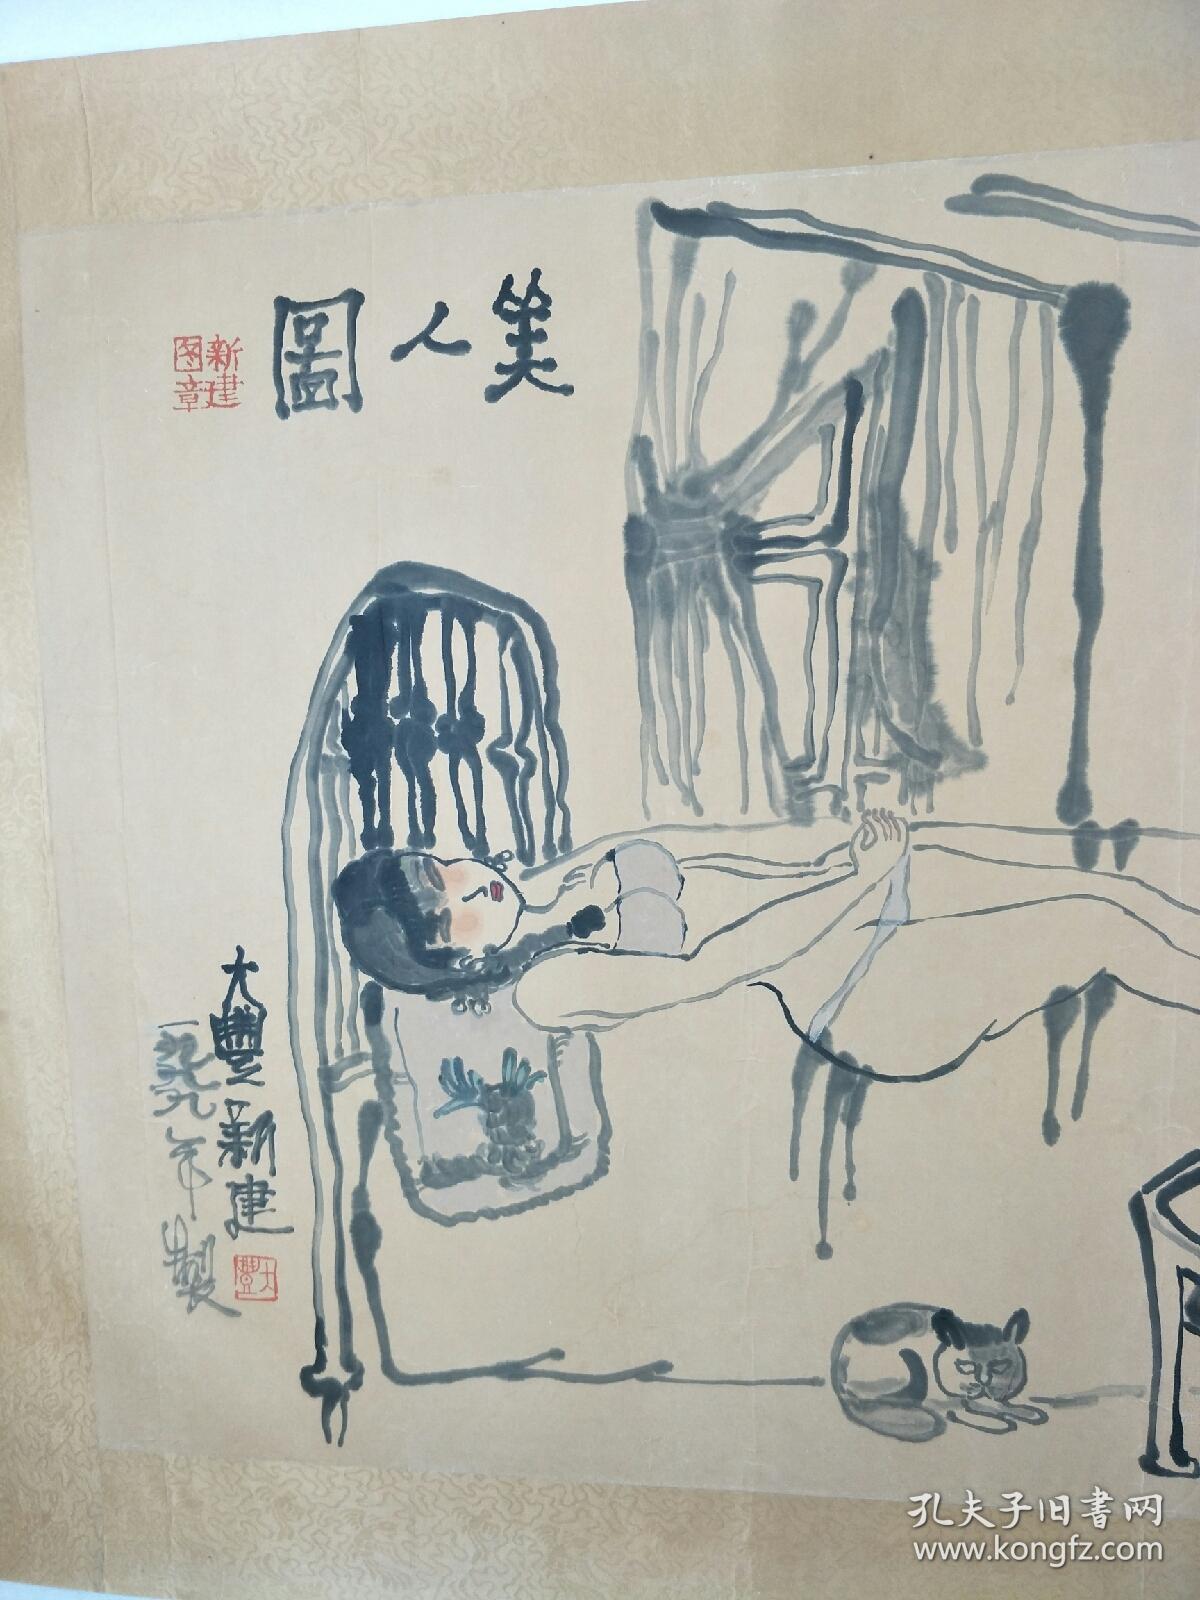 美人圖
新建
图章
大豐新建
一九九九年製
大豐
孔夫子旧书网
www.kongfz.com